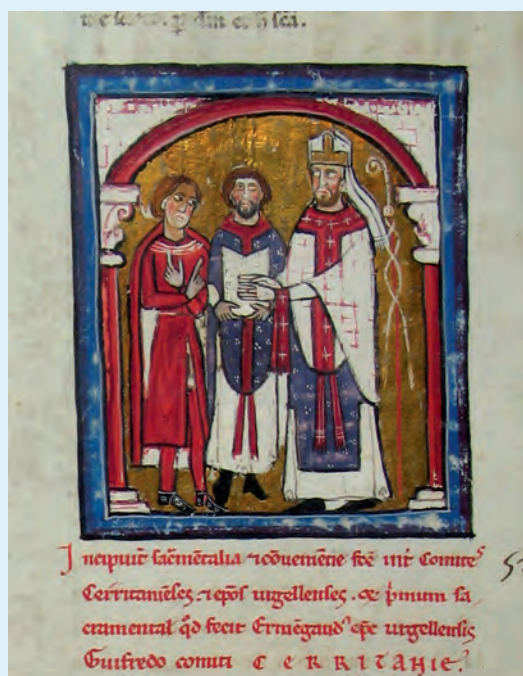 p̱ dm̄ et h̄ sc̄a.
Incipiūt sac̄mētalia ⁊ cōveniētie fc̄e int̄ Comiteˢ
Cerritaniēses. ⁊ ep̄os urgellenses. ⁊ p̄mum sa-
cramental q̄d fecit Ermēgaudꝰ ep̄c urgellensis
Guifredo comiti CERRITANIE.